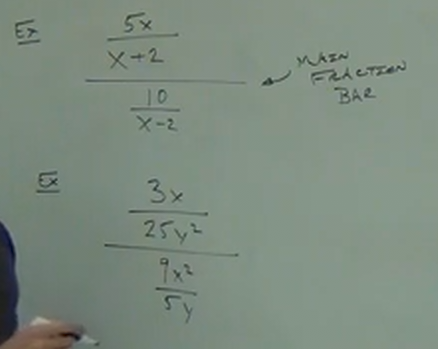 Ex
5x
x+2
10
x-2
MAIN
FRACTION
BAR
Ex
3x
25y²
9x²
5y